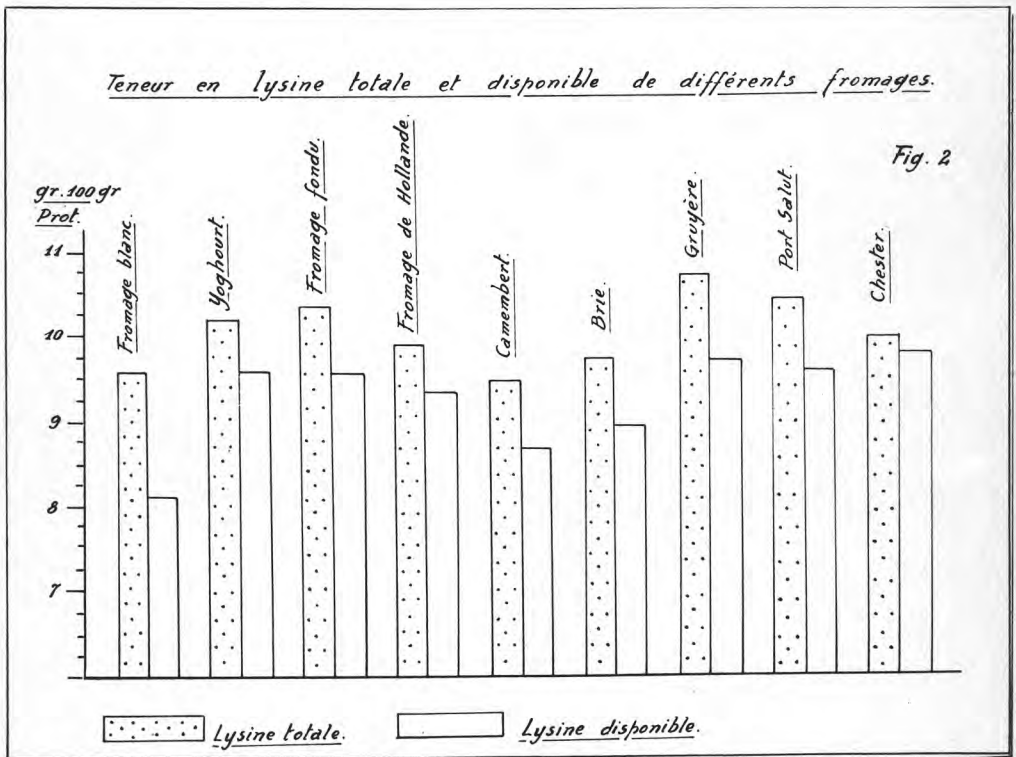 Teneur en lysine totale et disponible de différents fromages.
Fig. 2
gr.100gr
Prot.
11
10
9
8
7
Fromage blanc.
Yoghourt.
Fromage fondu.
Fromage de Hollande.
Camembert.
Brie.
Gruyère.
Port Salut.
Chester.
Lysine totale.
Lysine disponible.